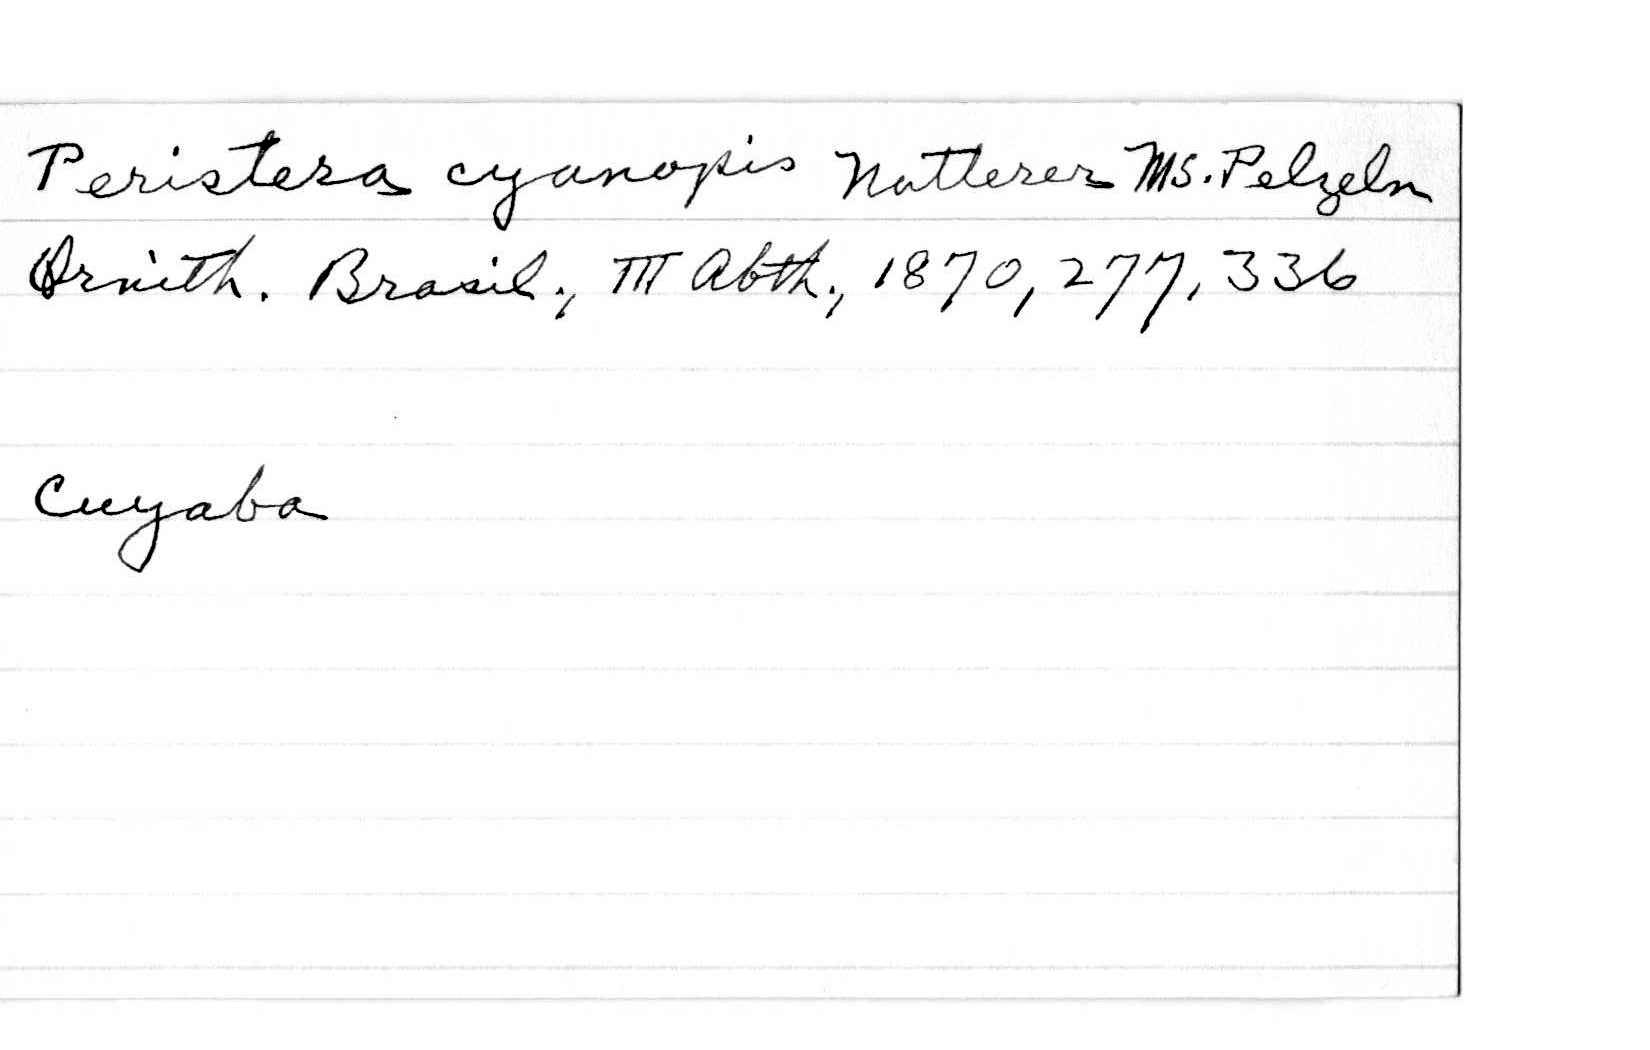 Peristera cyanopis Natterer Ms. Pelzeln
Ornith. Brasil., III Abth., 1870, 277, 336
Cuyaba